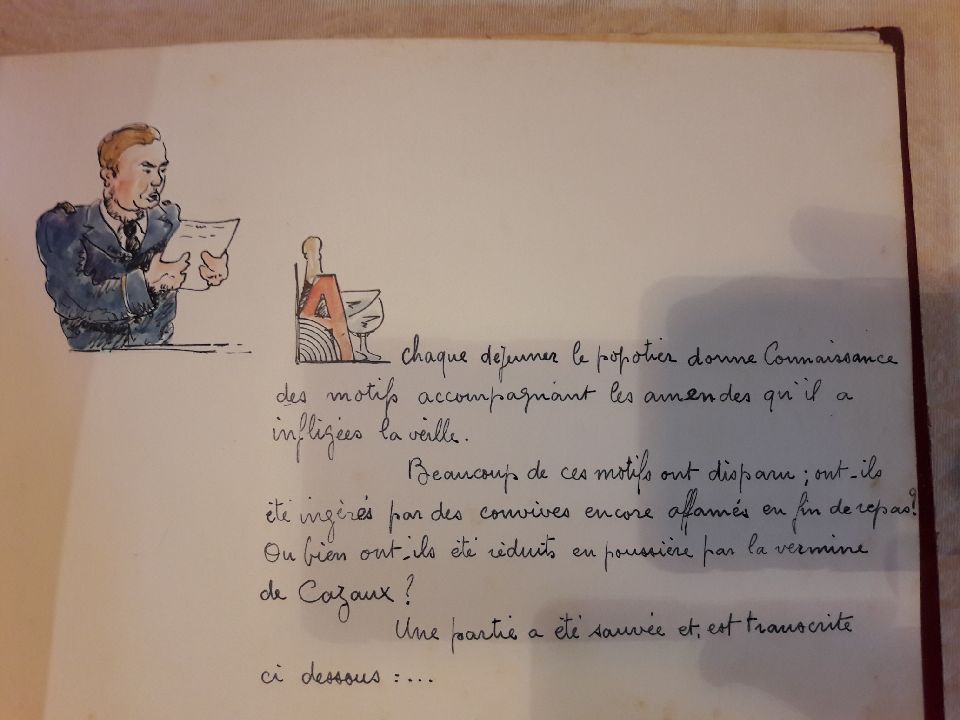 A chaque déjeuner le popotier donne Connaissance
des motifs accompagnant les amendes qu'il a
infligées la veille.
Beaucoup de ces motifs ont disparu ; ont-ils
été ingérés par des convives encore affamés en fin de repas?
Ou bien ont-ils été réduits en poussière par la vermine
de Cazaux ?
Une partie a été sauvée et est transcrite
ci dessous :...